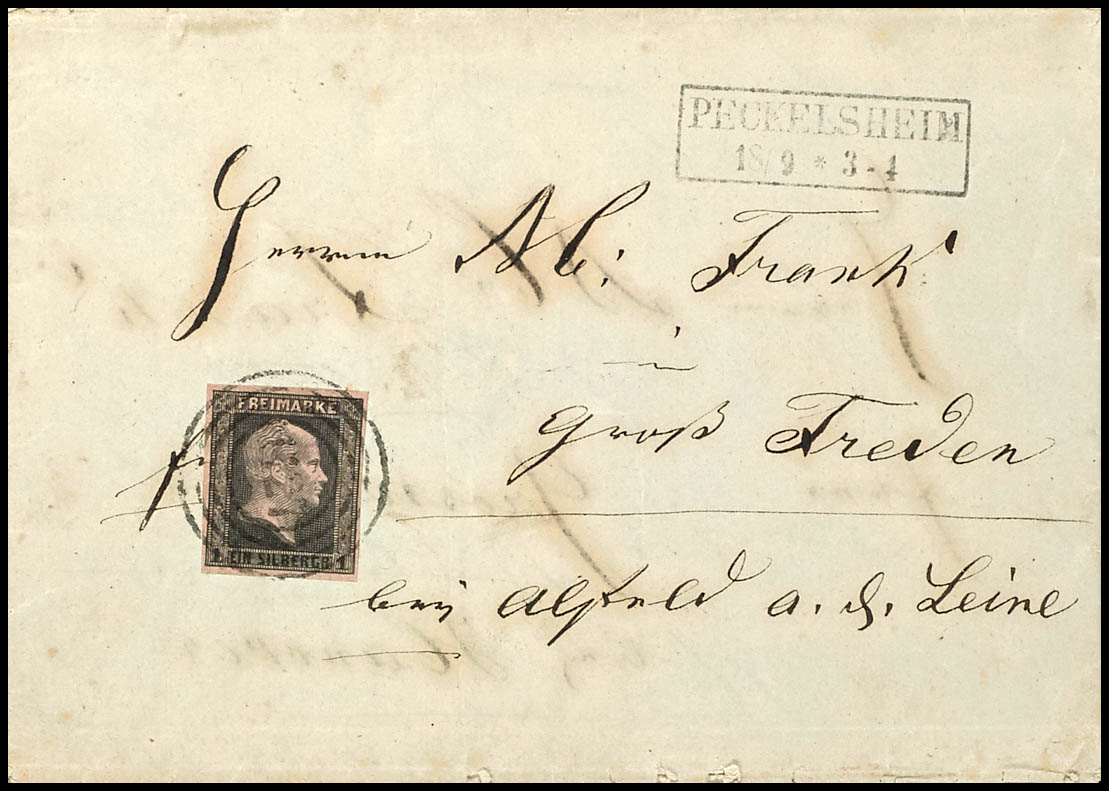 PECKELSHEIM
18/9 * 3-4
Herrn Ab: Frank
in
Groß Freden
FREIMARKE
1 EIN SILBERGR. 1
bey Alfeld a. d. Leine